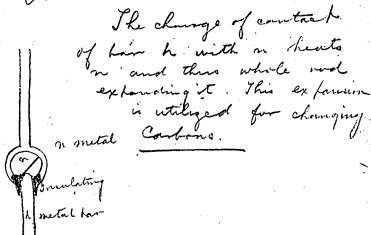 The change of contact
of bar h with n heats
n and thus whole rod
expanding it. This expansion
is utilized for changing
Carbons.
n metal
insulating
h metal bar